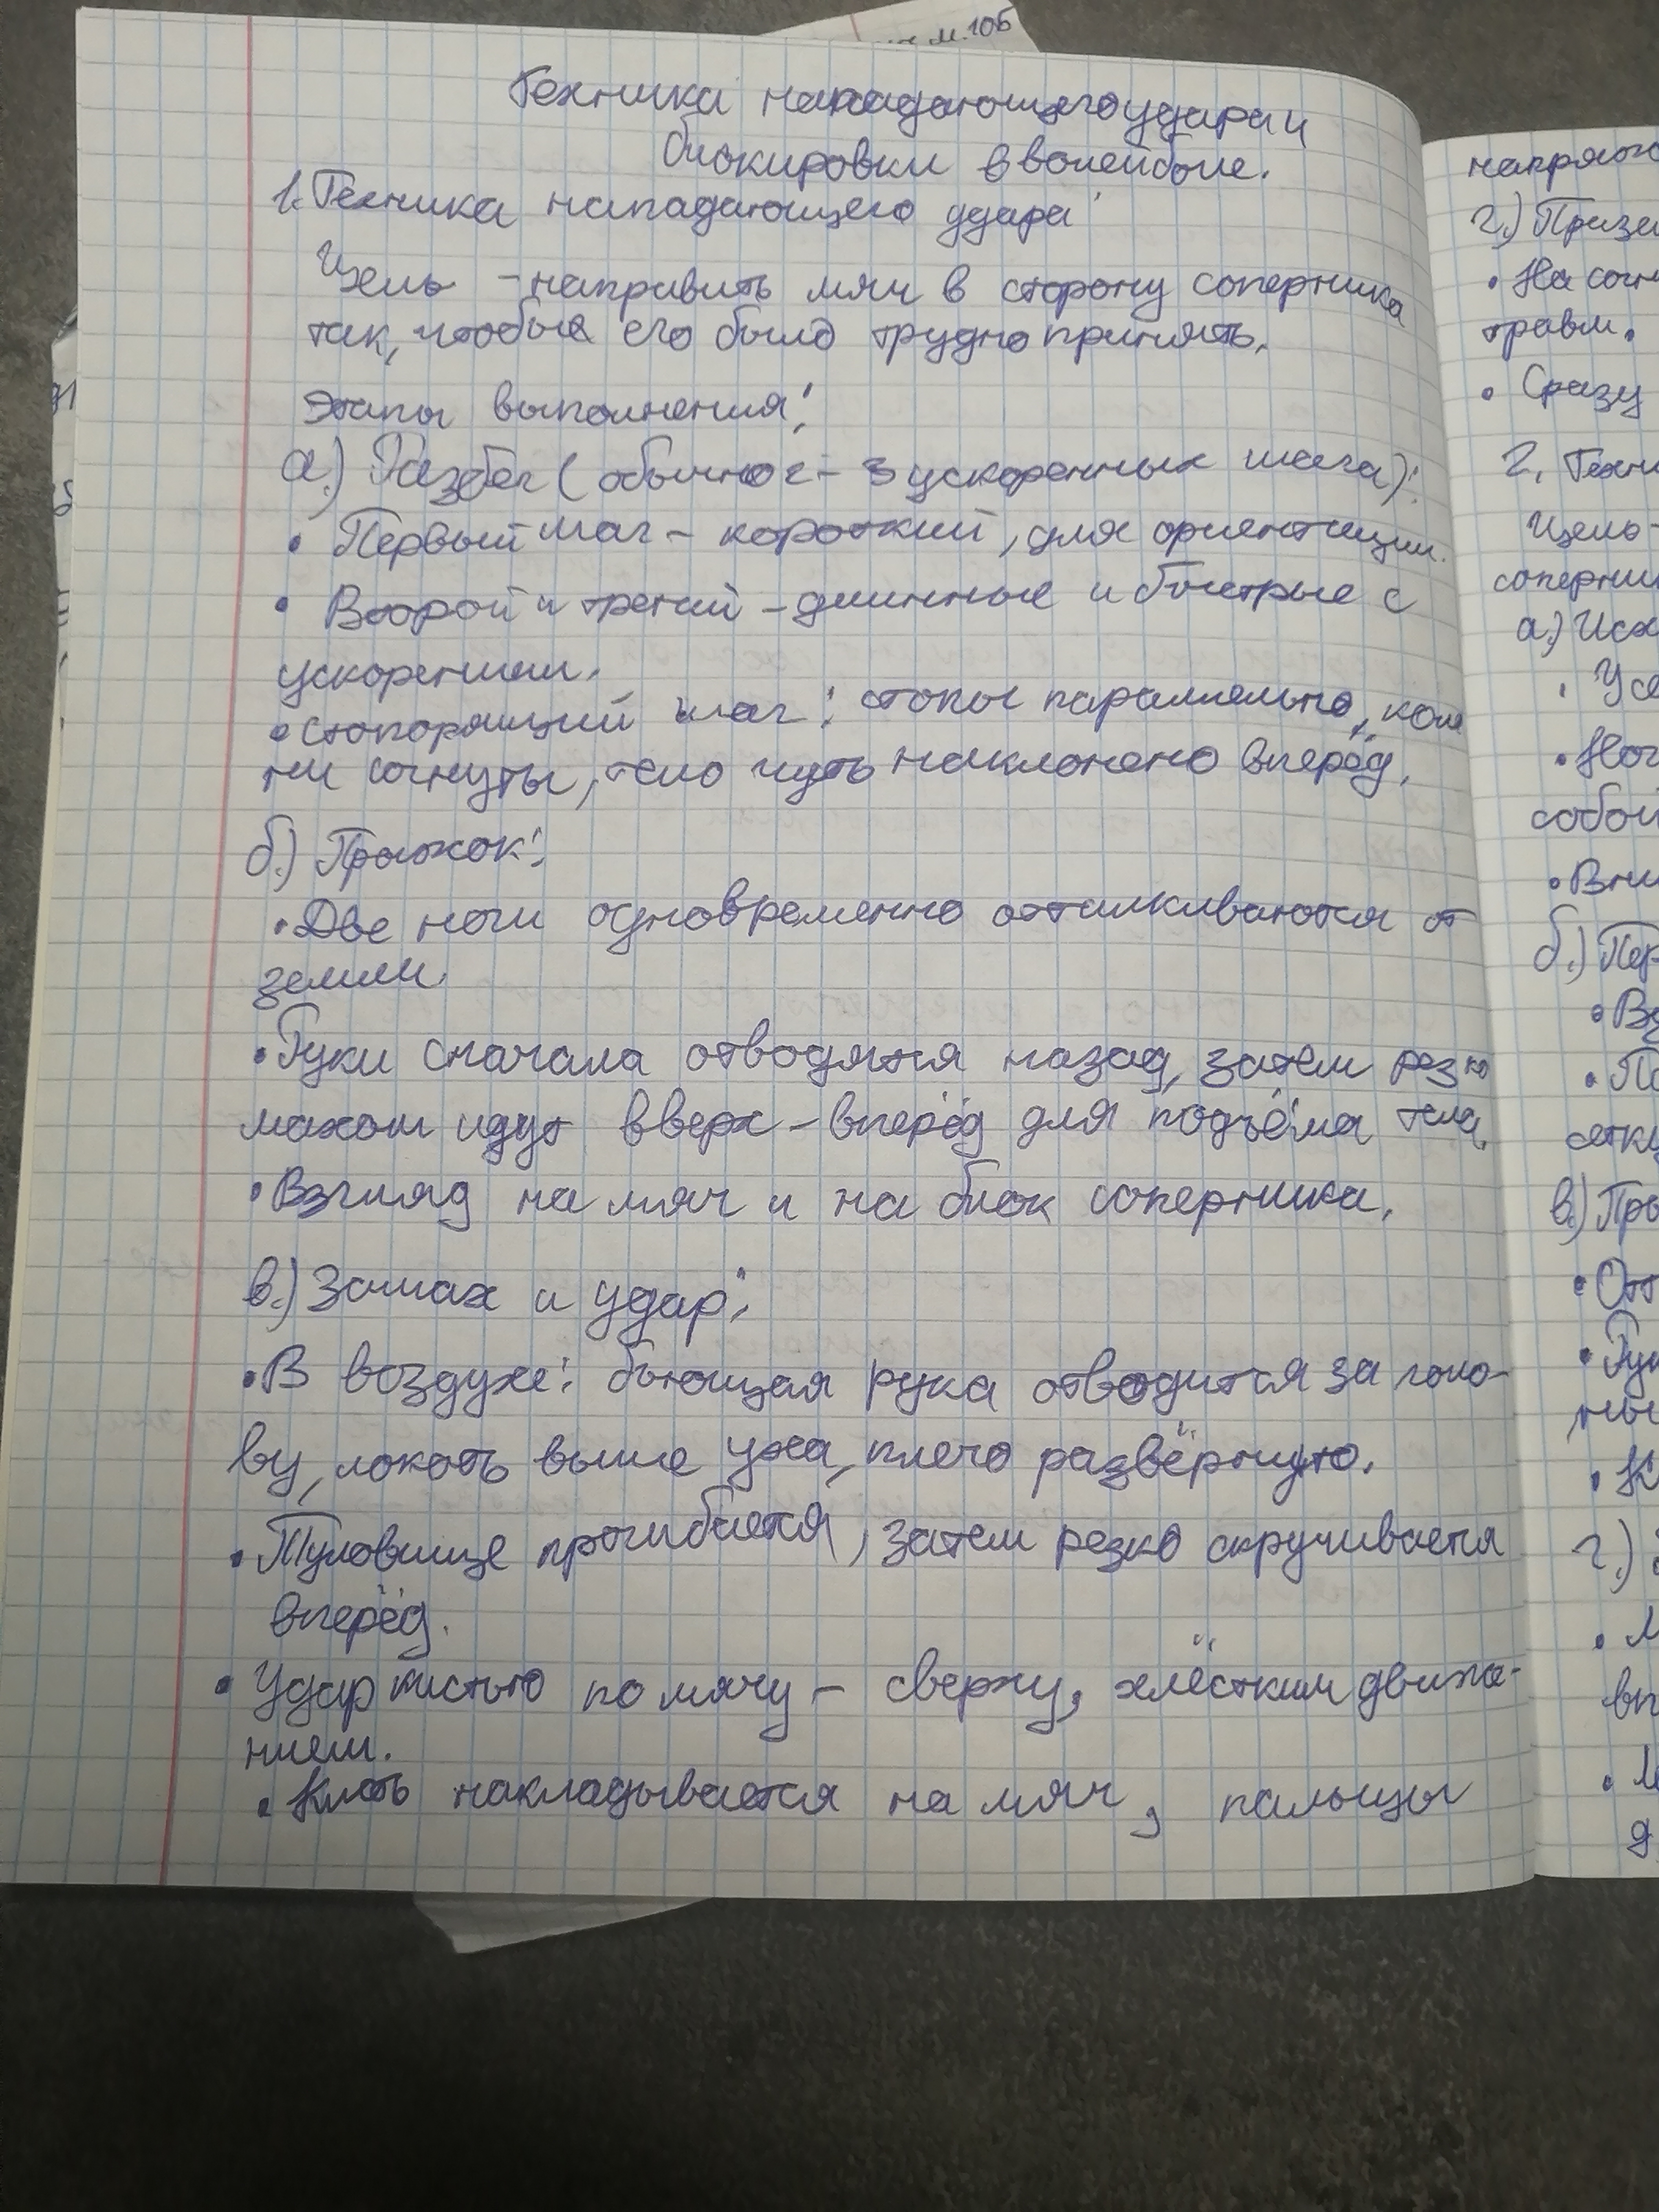 м.10б
Техника нападающего удара и
блокировки в волейболе.
1. Техника нападающего удара:
Цель - направить мяч в сторону соперника
так, чтобы его было трудно принять.
Этапы выполнения:
а.) Разбег (обычно 2-3 ускоренных шага):
• Первый шаг - короткий, для ориентации.
• Второй и третий - длинные и быстрые с
ускорением.
• Стопорящий шаг: стопы параллельно, коле
ни согнуты, тело чуть наклонено вперёд.
б.) Прыжок:
• Две ноги одновременно отталкиваются от
земли.
• Руки сначала отводятся назад, затем резко
махом идут вверх - вперёд для подъёма тела.
• Взгляд на мяч и на блок соперника.
в.) Замах и удар:
• В воздухе: бьющая рука отводится за голо-
ву, локоть выше уха, плечо развёрнуто.
• Туловище прогибается, затем резко скручивается
вперёд.
• Удар кистью по мячу - сверху, хлёстким движе-
нием.
• Кисть накладывается на мяч, пальцы
г.)
• На
травм.
• Сразу
2. Техни
Цель -
соперни
а.) Исх
•
•
собой
•
б.) Пер
•
•
сетку
в.) Пры
• От
• Рук
•
г.)
•
вп
•